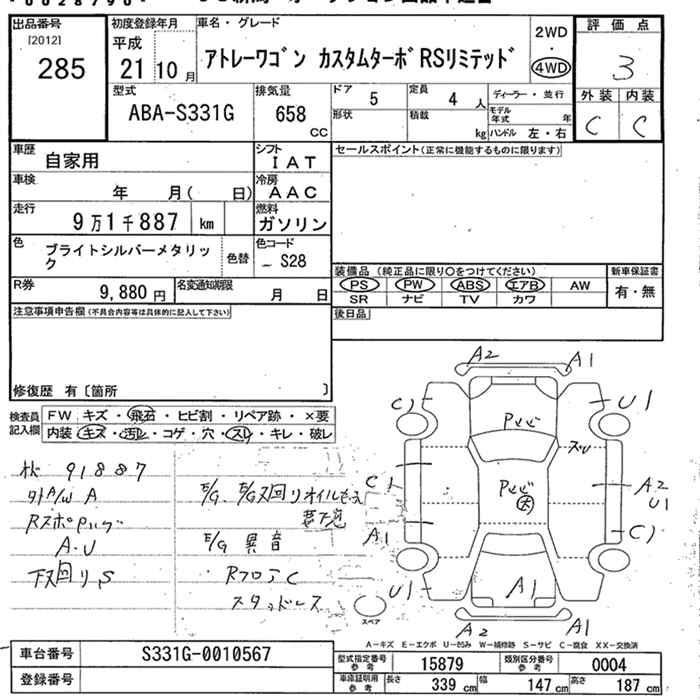 出品番号
[2012]
285
初度登録年月
平成
21 10月
車名・グレード
アトレーワゴン カスタムターボRSリミテッド
2WD
・
4WD
評価点
3
外装 内装
C C
型式
ABA-S331G
排気量
658
CC
ドア
5
定員
4 人
形状
積載
kg
ディーラー・並行
モデル年式 年
ハンドル 左・右
車歴
自家用
シフト
I A T
車検
年 月( 日)
冷房
A A C
走行
9万1千887 km
燃料
ガソリン
色
ブライトシルバーメタリック
色替
色コード
- S28
R券
9,880 円
名変通知期限
月 日
セールスポイント(正常に機能するものに限ります)
装備品 (純正品に限り○をつけてください)
PS PW ABS エアB AW
SR ナビ TV カワ
新車保証書
有・無
後日品
注意事項申告欄(不具合内容等は具体的に記入して下さい)
修復歴 有〔箇所 〕
検査員記入欄
FW キズ・飛石・ヒビ割・リペア跡・×要
内装 キズ・汚レ・コゲ・穴・スレ・キレ・破レ
91887
外A/W A
A.U
下又回リS
E/G 異音
RフロアC
スタッドレス
A2 A1
U1
A2
U1
C1
A1
U1
A1
A2 A1
スペア
A-キズ E-エクボ U-凹み W-補修跡 S-サビ C-腐食 XX-交換済
車台番号
S331G-0010567
登録番号
型式指定番号
参考
15879
類別区分番号
参考
0004
車庫証明用
参考
長さ
339 cm
幅
147 cm
高さ
187 cm